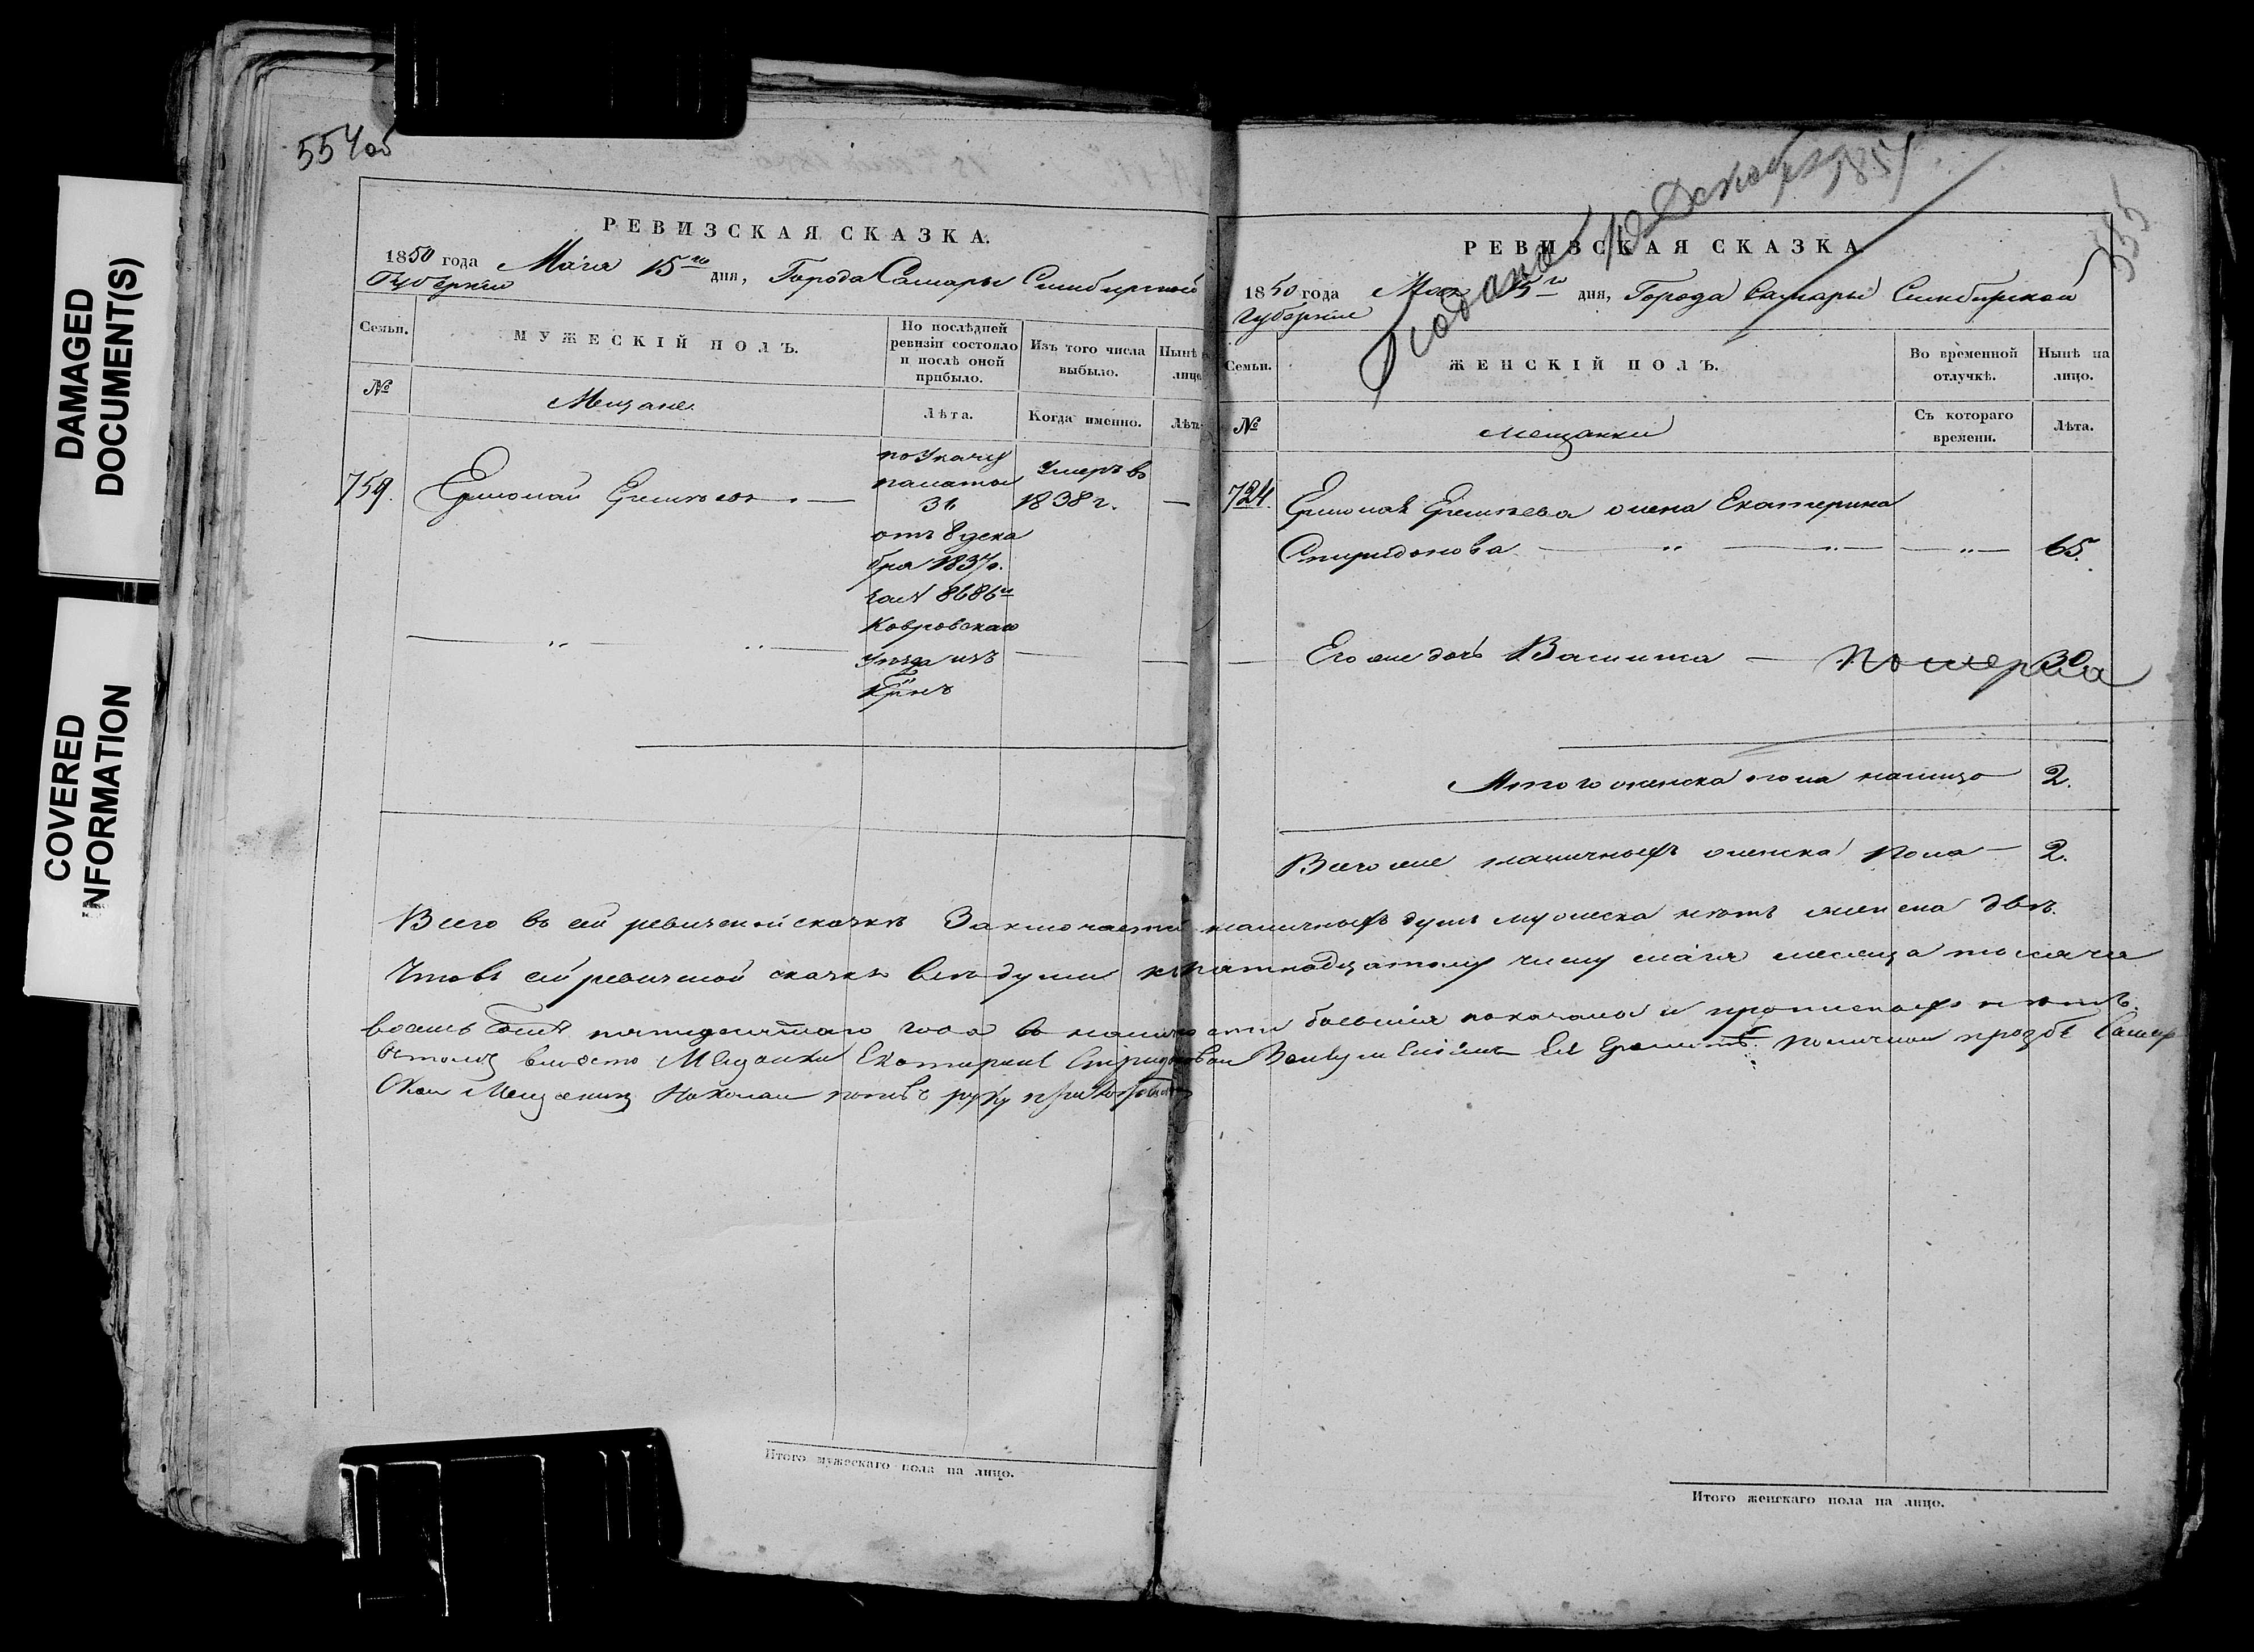 DAMAGED
DOCUMENT(S)
COVERED
NFORMATION
554 об
РЕВИЗСКАЯ СКАЗКА.
1850 года Мая 15го дня, Города Самары Симбирской
Губернии
Семьи.
МУЖЕСКІЙ ПОЛЪ.
По послѣдней
ревизіи состояло
и послѣ оной
прибыло.
Изъ того числа
выбыло.
Нынѣ
лицо
№
Мещане.
Лѣта.
Когда именно.
Лѣта
759.
по Указу
палаты
31
отъ 8 дека
бря 1837 г.
за № 8686
Ковровскаго
Уѣзда изъ
Умеръ въ
1838 г.
Итого мужескаго пола на лицо.
Подано 10 Декабря 1851
555
РЕВИЗСКАЯ СКАЗКА
1850 года Мая 15го дня, Города Самары Симбирской
Губерніи
Семьи.
ЖЕНСКІЙ ПОЛЪ.
Во временной
отлучкѣ.
Нынѣ на
лицо.
№
мещанки
Съ котораго
времени.
Лѣта.
724.
жена Екатерина
Спиридонова 65.
Его же дочь Померла 30
Итого женска пола налицо 2.
Всего же наличныхъ женска пола 2.
Всего въ сей ревизской сказкѣ Заключается наличныхъ душъ мужеска нѣтъ женска двѣ.
Что въ сей ревизской сказкѣ всѣ души къ пятнадцатому числу мая месяца тысяча
восемь сотъ пятидесятаго года въ наличности бывшія показаны и прописныхъ нѣтъ
вместо Мещанки Екатерины Спиридоновой личной прозбе Самар
ской Мещенинъ Николай руку приложилъ
Итого женскаго пола на лицо.